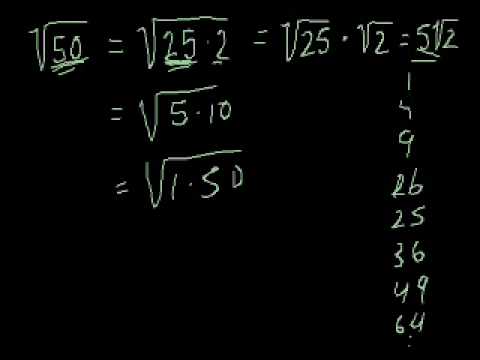 √50 = √25·2 = √25 · √2 = 5√2
= √5·10
= √1·50
1
4
9
26
25
36
49
64